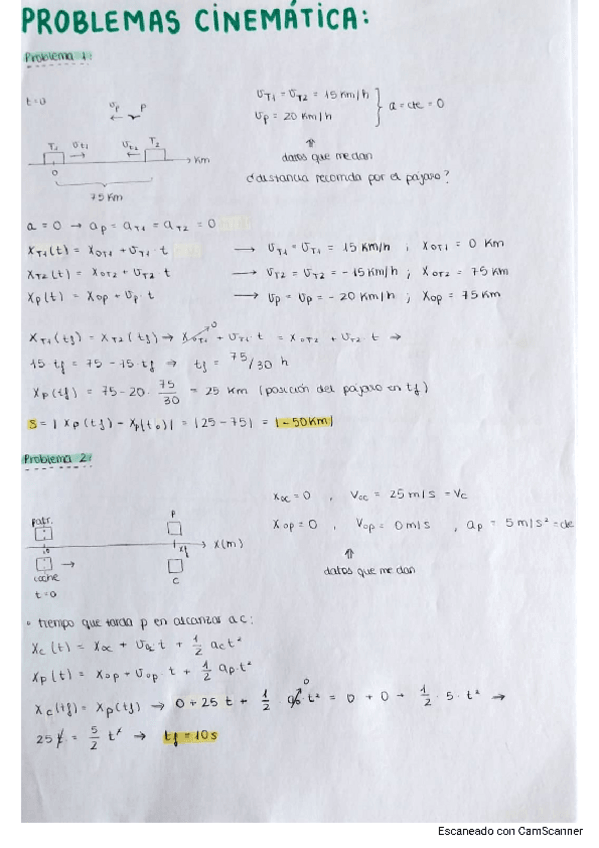 PROBLEMAS CINEMÁTICA:
Problema 1:
t=0
vp P
T1 vt1 vt2 T2
0 Km
75 Km
vT1 = vT2 = 15 Km/h
vp = 20 Km/h
a = cte = 0
⇑
datos que me dan
d distancia recorrida por el pájaro?
a = 0 → ap = aT1 = aT2 = 0
xT1(t) = x0T1 + vT1 · t → vT1 = vT1 = 15 Km/h ; x0T1 = 0 Km
xT2(t) = x0T2 + vT2 t → vT2 = vT2 = -15 Km/h ; x0T2 = 75 Km
xp(t) = x0p + vp · t → vp = vp = -20 Km/h ; x0p = 75 Km
xT1(tf) = xT2(tf) → x0T1 0 + vT1 · t = x0T2 + vT2 t →
15 tf = 75 - 15 · tf → tf = 75/30 h
xp(tf) = 75 - 20 · 75/30 = 25 Km (posición del pájaro en tf)
s = | xp(tf) - xp(t0)| = |25 - 75| = |-50Km|
Problema 2:
patr. P
0 xf X(m)
coche C
t=0
x0c = 0 , V0c = 25 m/s = Vc
x0p = 0 , V0p = 0 m/s , ap = 5 m/s² = cte
⇑
datos que me dan
• tiempo que tarda p en alcanzar a c:
xc (t) = x0c + v0c t + 1/2 ac t²
xp (t) = x0p + v0p t + 1/2 ap · t²
xc(tf) = xp(tf) → 0 + 25 t + 1/2 · ac 0 · t² = 0 + 0 + 1/2 · 5 · t² →
25 t = 5/2 t² → tf = 10 s
Escaneado con CamScanner